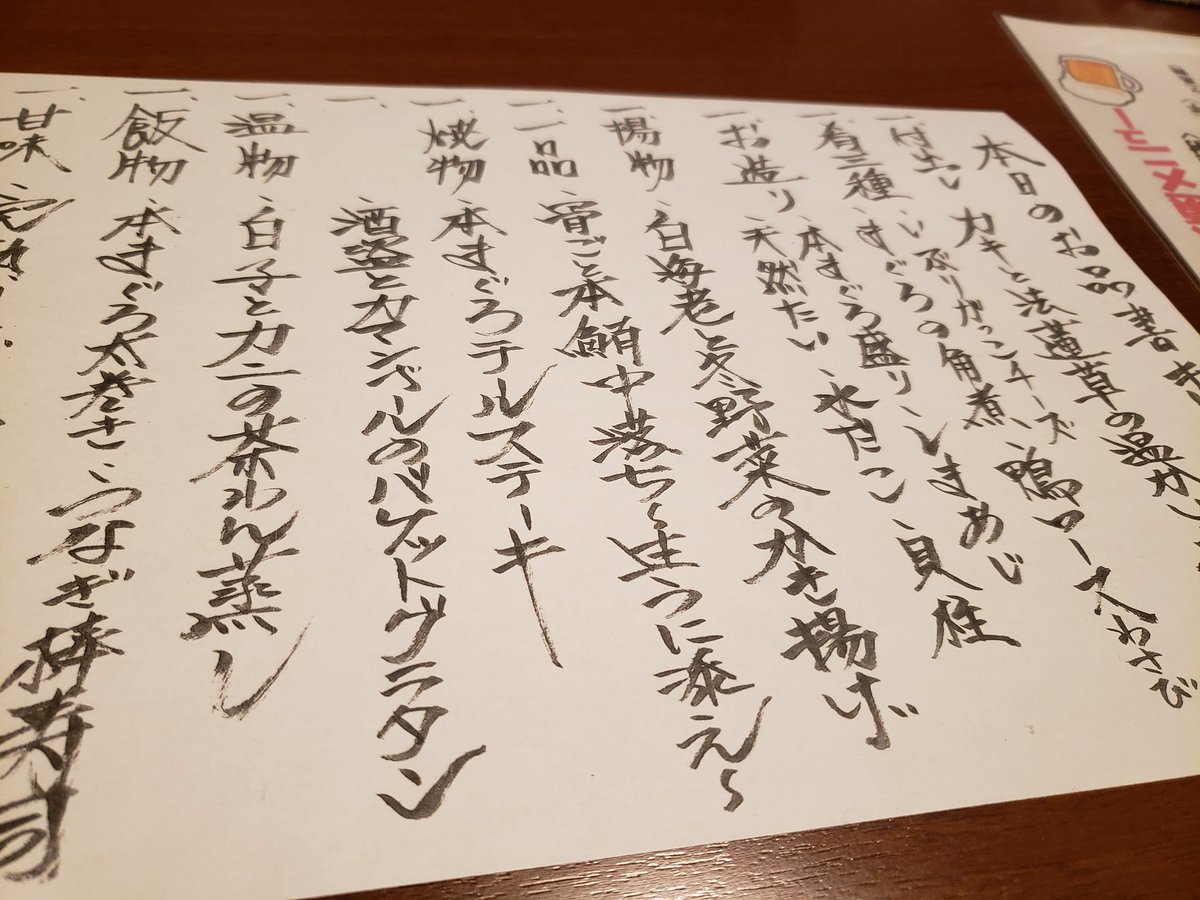 本日のお品書き
一、付出し カキと法蓮草の温か
一、肴三種 いぶりがっこチーズ、鴨ロースわさび
、まぐろの角煮
一、お造り 、本まぐろ盛り、しまあじ
、天然たい、水だこ、貝柱
一、揚物 、白海老と冬野菜のかき揚げ
一、一品 、骨ごと本鮪中落ち〜生うに添え〜
一、焼物 、本まぐろテールステーキ
一、 酒盗とカマンベールのバゲットグラタン
一、温物 、白子とカニの茶わん蒸し
一、飯物 、本まぐろ太巻き、うなぎ棒寿司
一、甘味